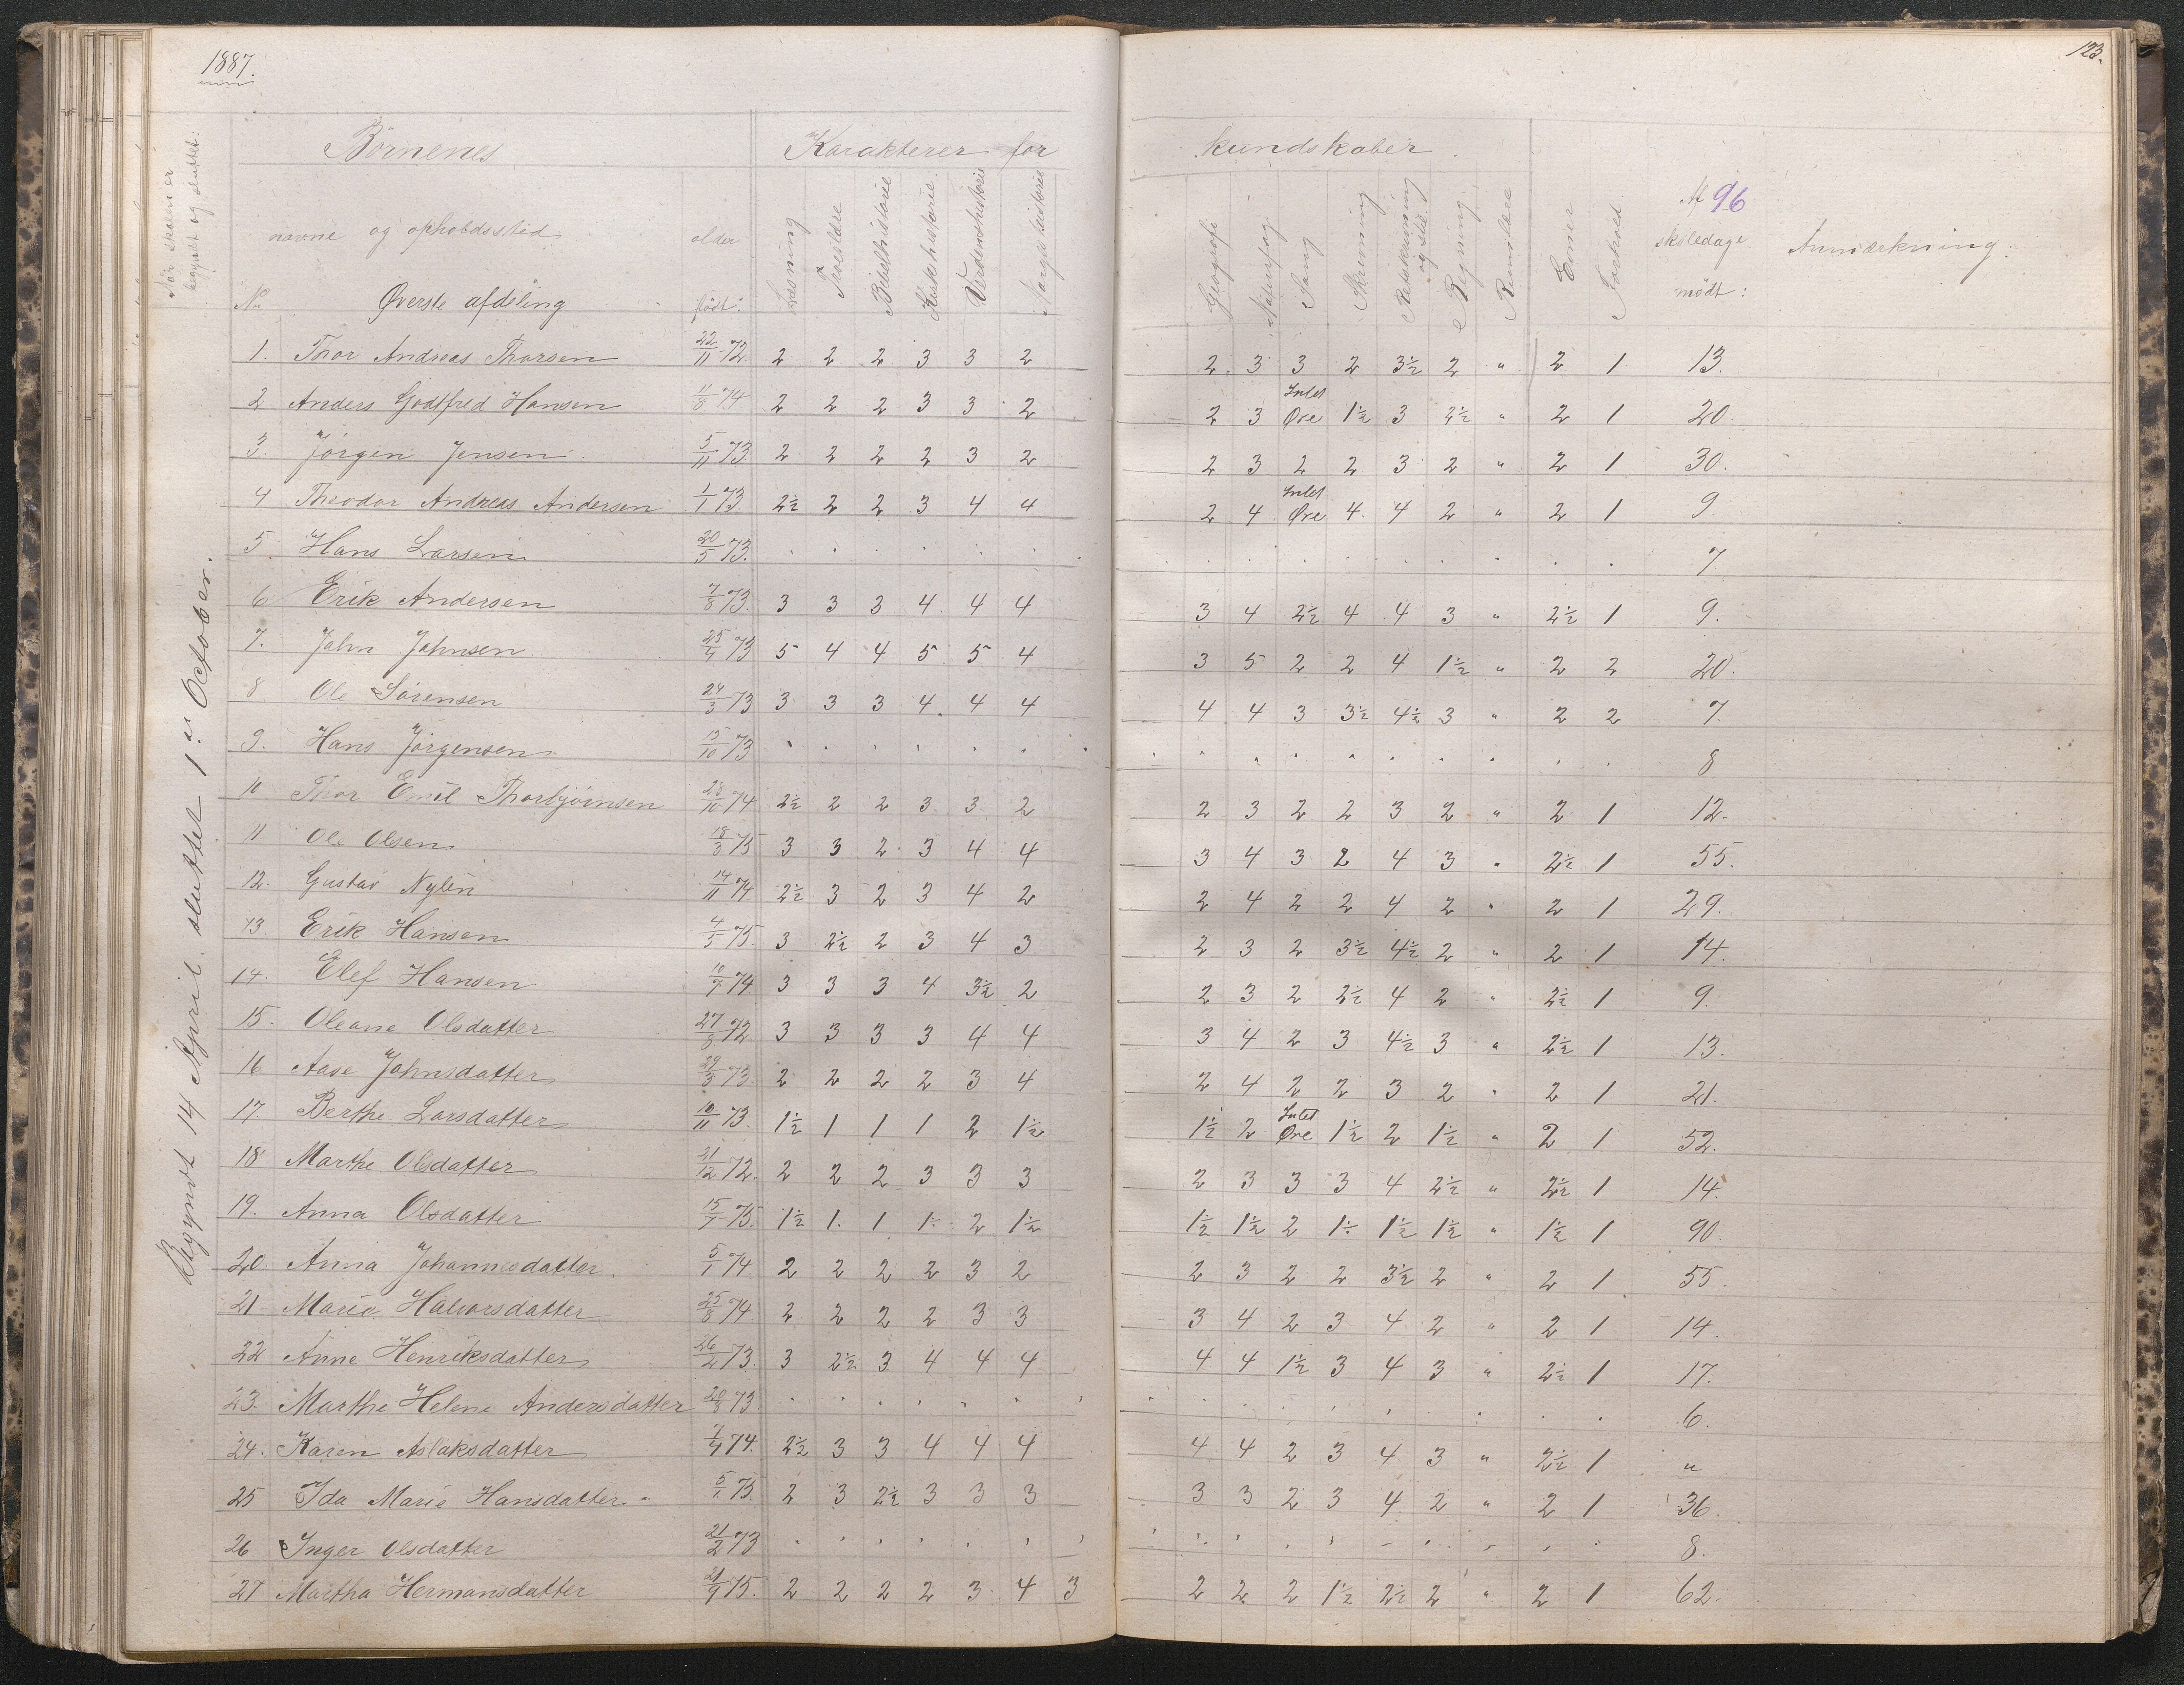 1887.
123.
Når skolen er begyndt og sluttet:
Begyndt 14 April. sluttet 1ste October.
Børnenes
Karakterer for
kundskaber.
navne og opholdssted
alder
Læsning
Troeslære
Bibelhistorie
Kirkehistorie.
Verdenshistorie
Norgeshistorie
Geografi
Naturfag
Sang
Skrivning
Retskrivning og Stil
Regning
Rumlære
Evner
Forhold
Af 96
skoledage
mødt:
Anmærkning:
No Øverste afdeling født:
1. Thor Andreas Thorsen 22/11 72. 2 2 2 3 3 2 2 3 3 2 3½ 2 " 2 1 13.
2 Anders Godtfred Hansen 11/8 74 2 2 2 3 3 2 2 3 Intet Øre 1½ 3 2½ " 2 1 20.
3. Jörgen Jensen 5/11 73. 2 2 2 2 3 2 2 3 2 2 3 2 " 2 1 30.
4 Theodor Andreas Andersen 1/1 73. 2½ 2 2 3 4 4 2 4 Intet Øre 4 4 2 " 2 1 9
5. Hans Larsen 20/5 73. . . . . . . . . . . . . . . . 7.
6 Erik Andersen 7/8 73. 3 3 3 4 4 4 3 4 2½ 4 4 3 " 2½ 1 9.
7. John Johnsen 25/4 73 5 4 4 5 5 4 3 5 2 2 4 1½ " 2 2 20.
8 Ole Sörensen 24/3 73 3 3 3 4 4 4 4 4 3 3½ 4½ 3 " 2 2 7.
9. Hans Jörgensen 15/10 73 . . . . . . . . . . . . . . . 8
10 Thor Emil Thorbjörnsen 28/10 74 2½ 2 2 3 3 2 2 3 2 2 3 2 " 2 1 12.
11 Ole Olsen 18/3 75 3 3 2 3 4 4 3 4 3 2 4 3 " 2½ 1 55.
12. Gustav Nylén 14/11 74 2½ 3 2 3 4 2 2 4 2 2 4 2 " 2 1 29.
13. Erik Hansen 4/5 75. 3 2½ 2 3 4 3 2 3 2 3½ 4½ 2 " 2 1 14.
14. Elef Hansen 10/7 74. 3 3 3 4 3½ 2 2 3 2 2½ 4 2 " 2½ 1 9.
15. Oleane Olsdatter 27/8 72. 3 3 3 3 4 4 3 4 2 3 4½ 3 " 2½ 1 13.
16 Aase Johnsdatter 29/3 73. 2 2 2 2 3 4 2 4 2 2 3 2 " 2 1 21.
17 Berthe Larsdatter 10/11 73. 1½ 1 1 1 2 1½ 1½ 2 Intet Øre 1½ 2 1½ " 2 1 52.
18 Marthe Olsdatter 21/12 72. 2 2 2 3 3 3 2 3 3 3 4 2½ " 2½ 1 14.
19. Anna Olsdatter 15/7 75. 1½ 1. 1 1÷ 2 1½ 1½ 1½ 2 1÷ 1½ 1½ " 1½ 1 90.
20. Anna Johannesdatter. 5/1 74. 2 2 2 2 3 2 2 3 2 2 3½ 2 " 2 1 55.
21 Marie Halvorsdatter 25/8 74. 2 2 2 2 3 3 3 4 2 3 4 2 " 2 1 14.
22 Anne Henriksdatter 26/2 73. 3 2½ 3 4 4 4 4 4 1½ 3 4 3 " 2½ 1 17.
23. Marthe Helene Andersdatter 20/8 73 . . . . . . . . . . . . . . . 6.
24. Karen Aslaksdatter 1/4 74. 2½ 3 3 4 4 4 4 4 2 3 4 3 " 2½ 1 "
25 Ida Marie Hansdatter 5/1 75. 2 3 2½ 3 3 3 3 3 2 3 4 2 " 2 1 36.
26 Inger Olsdatter 21/2 73 . . . . . . . . . . . . . . . 8.
27 Martha Hermansdatter 21/9 75. 2 2 2 2 3 4 3 2 2 2 1½ 2½ 2 " 2 1 62.